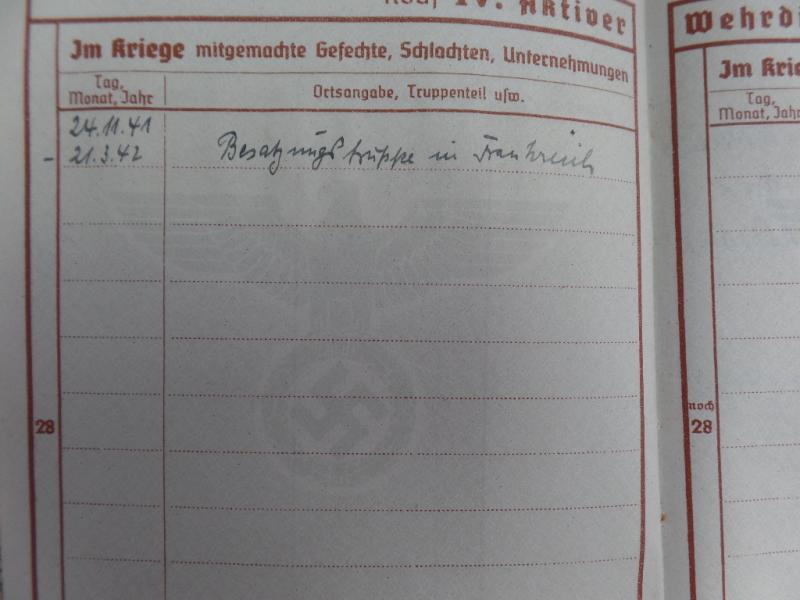 Noch IV. Aktiver
Im Kriege mitgemachte Gefechte, Schlachten, Unternehmungen
Tag, Monat, Jahr
Ortsangabe, Truppenteil usw.
24.11.41
- 21.3.42 Besatzungstruppe in Frankreich
28
Wehrdi
Im Krie
Tag,
Monat, Jahr
noch
28